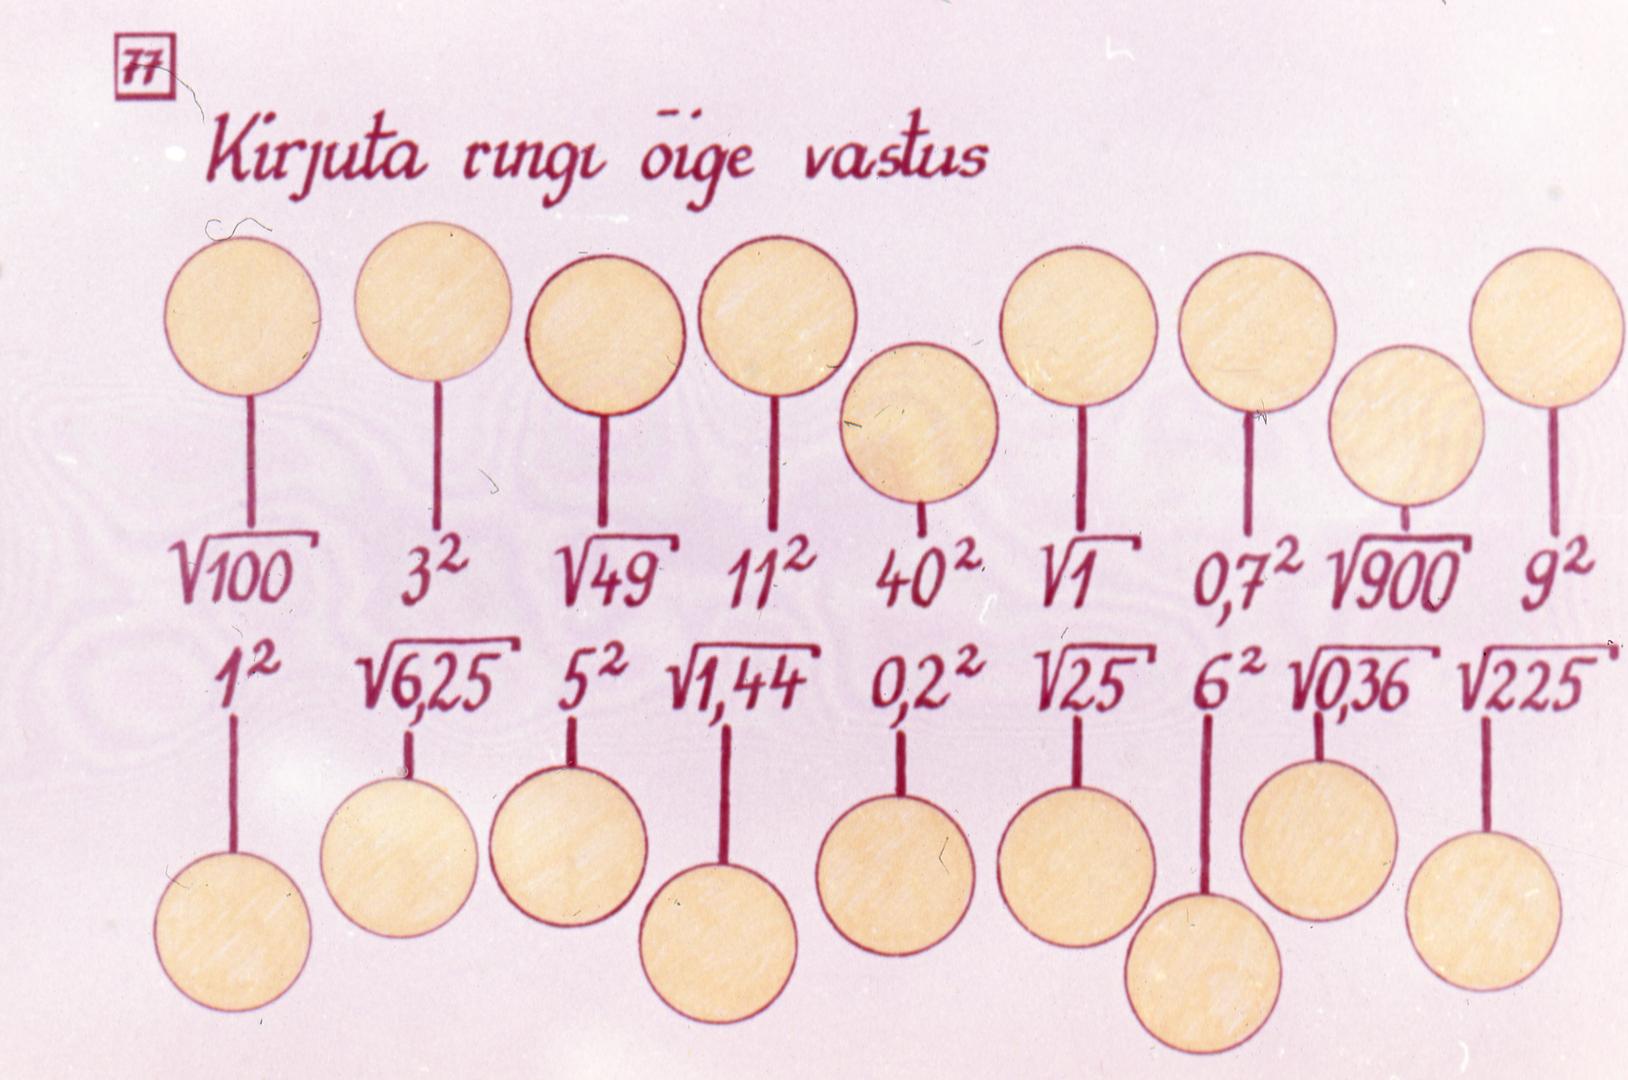 77
Kirjuta ringi õige vastus
√100 3² √49 11² 40² √1 0,7² √900 9²
1² √6,25 5² √1,44 0,2² √25 6² √0,36 √225